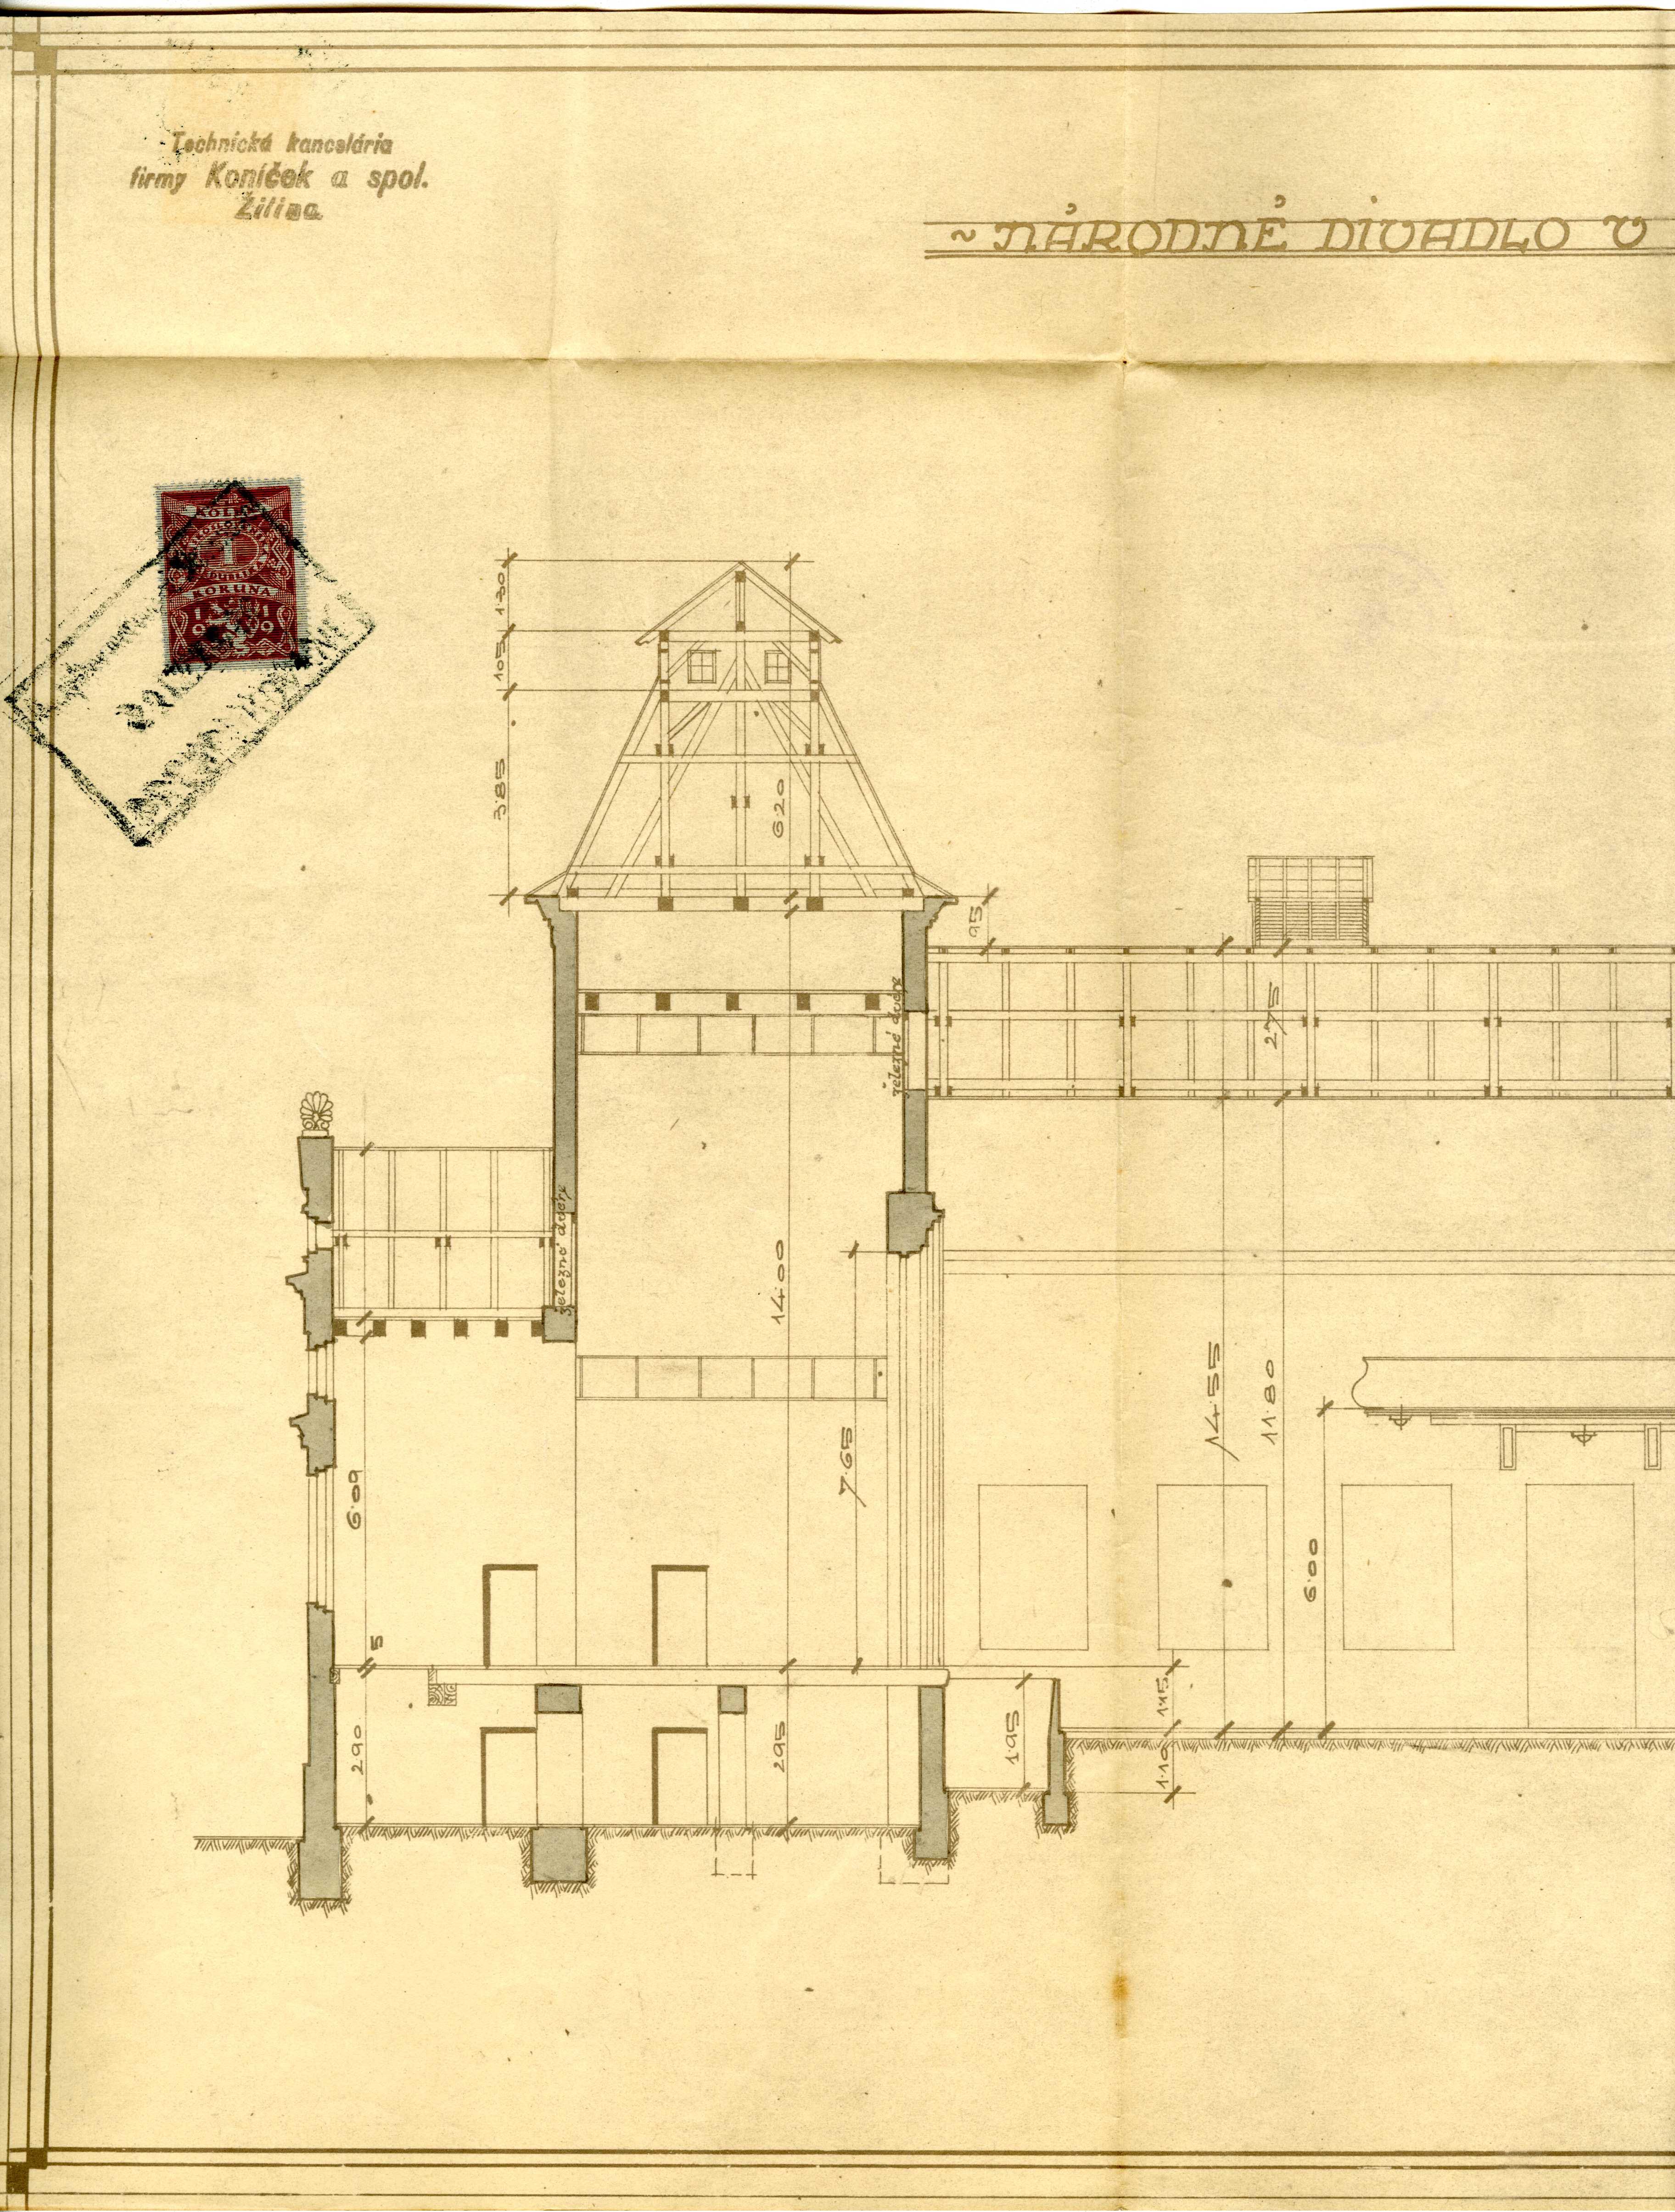 Technická kancelária
firmy Koníček a spol.
Žilina
~ NÁRODNÉ DIVADLO V
KOLEK
1
KORUNA
1919
1·30
1·05
3·85
6·20
95
železné dvere
2·75
železné dvere
14·00
14·55
11·80
7·65
6·09
6·00
5
2·90
2·95
1·95
1·45
1·10